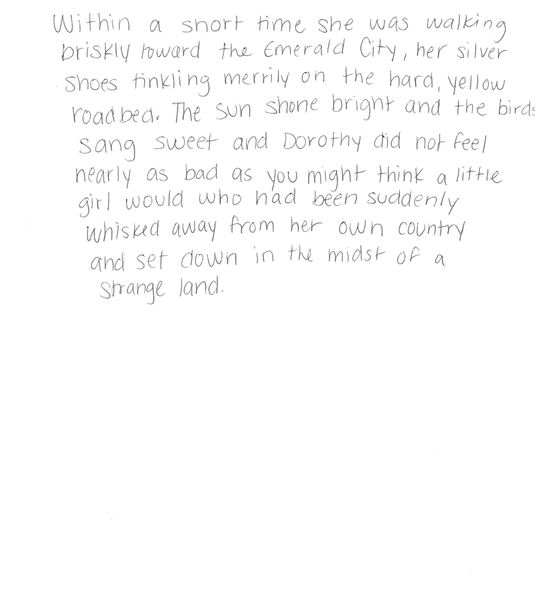 Within a short time she was walking
briskly toward the Emerald City, her silver
Shoes tinkling merrily on the hard, yellow
roadbed. The sun shone bright and the birds
Sang sweet and Dorothy did not feel
nearly as bad as you might think a little
girl would who had been suddenly
whisked away from her own country
and set down in the midst of a
strange land.